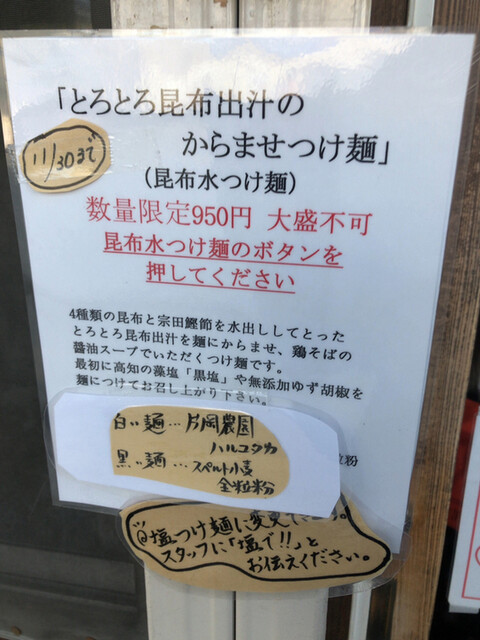 「とろとろ昆布出汁の
からませつけ麺」
11/30まで
(昆布水つけ麺)
数量限定950円 大盛不可
昆布水つけ麺のボタンを
押してください
4種類の昆布と宗田鰹節を水出ししてとった
とろとろ昆布出汁を麺にからませ、鶏そばの
醤油スープでいただくつけ麺です。
最初に高知の藻塩「黒塩」や無添加ゆず胡椒を
麺につけてお召し上がり下さい。
白い麺…片岡農園
ハルユタカ
黒い麺…スペルト小麦
全粒粉
粒粉
@塩つけ麺に変更
スタッフに「塩で!!」と
お伝えください。